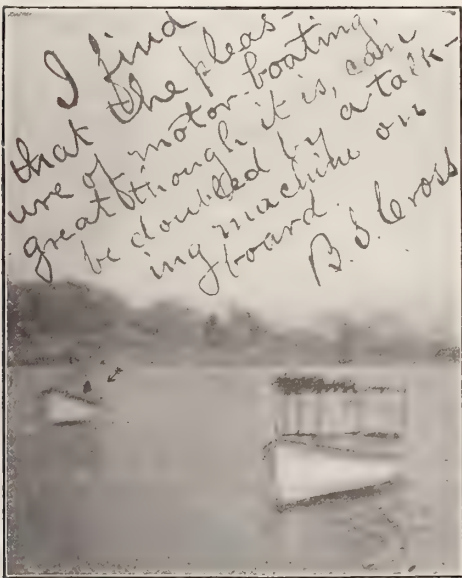 I find
that the pleas-
ure of motor-boating,
great though it is, can
be doubled by a talk-
ing machine on
board.
B. S. Cross